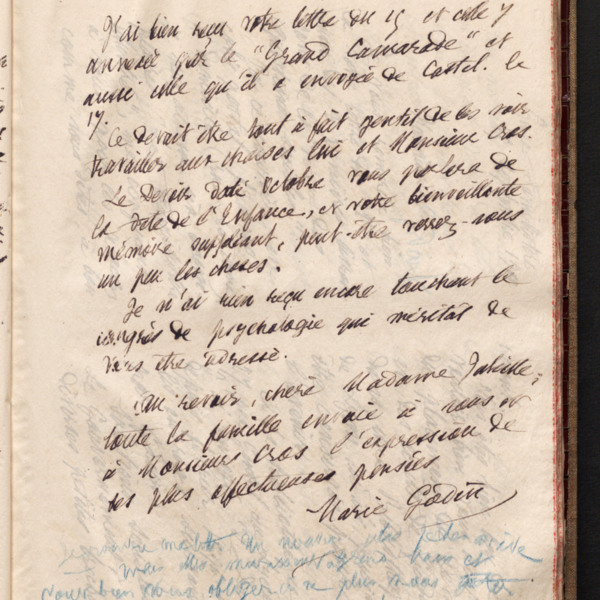 J'ai bien reçu votre lettre du 15 et celle y
annexée par le "Grand Camarade" et
aussi celle qu'il a envoyée de Castel. le
17.
Ce devait être tout à fait gentil de les voir
travailler aux chaises lui et Monsieur Cros.
Le Devoir daté Octobre vous parlera de
la Fête de l'Enfance, et votre bienveillante
mémoire suppléant, peut-être verrez-vous
un peu les choses.
Je n'ai rien reçu encore touchant le
congrès de psychologie qui méritât de
vous être adressé.
Au revoir, chère Madame
toute la famille envoie à vous et
à Monsieur Cros l'expression de
ses plus affectueuses pensées
Marie Godin
plus
mais des
bien vous obliger plus